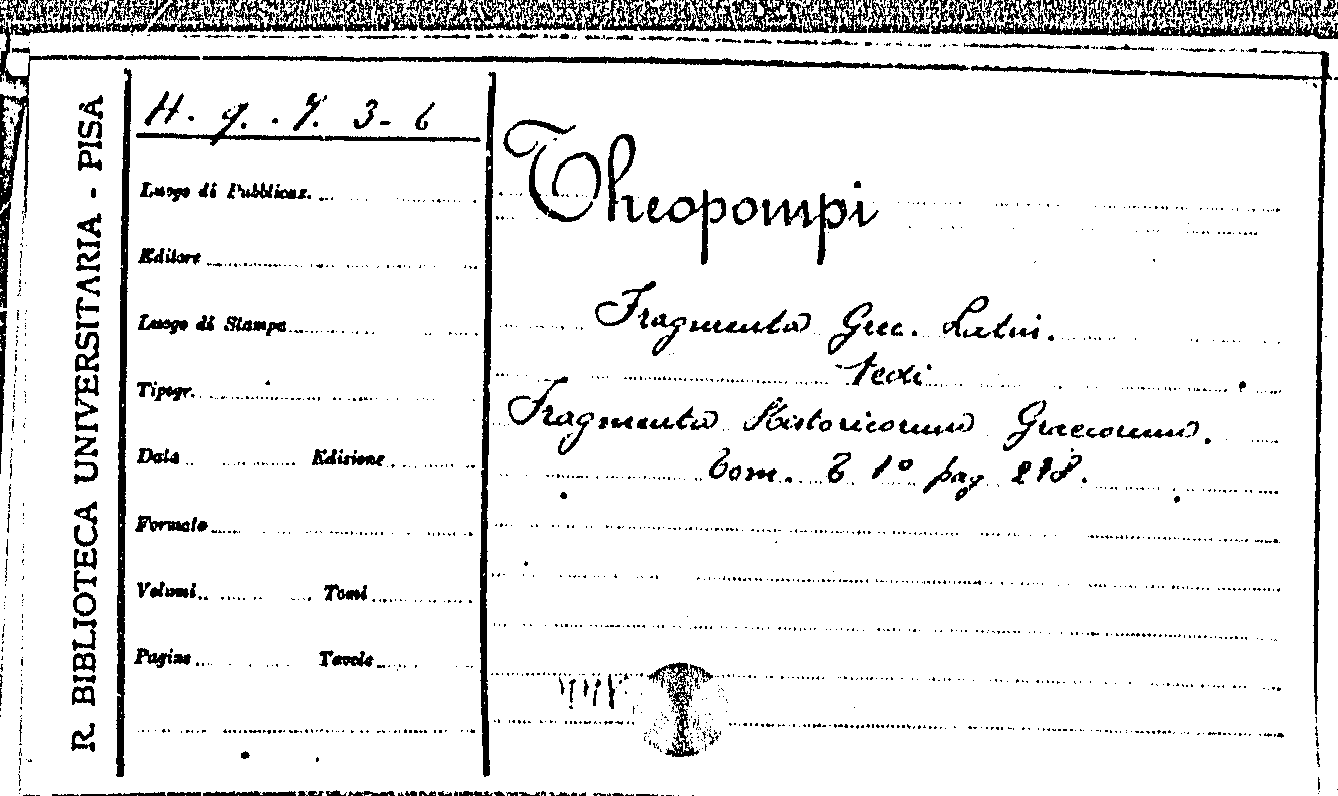 R. BIBLIOTECA UNIVERSITARIA - PISA
H. g. . 7. 3-6
Luogo di Pubblicaz.
Editore
Luogo di Stampa
Tipogr.
Data Edizione
Formato
Volumi Tomi
Pagine Tavole
Theopompi
Fragmenta Grec. Latini.
Vedi
Fragmenta Historicorum Graecorum.
Tom. T 1° pag 278.